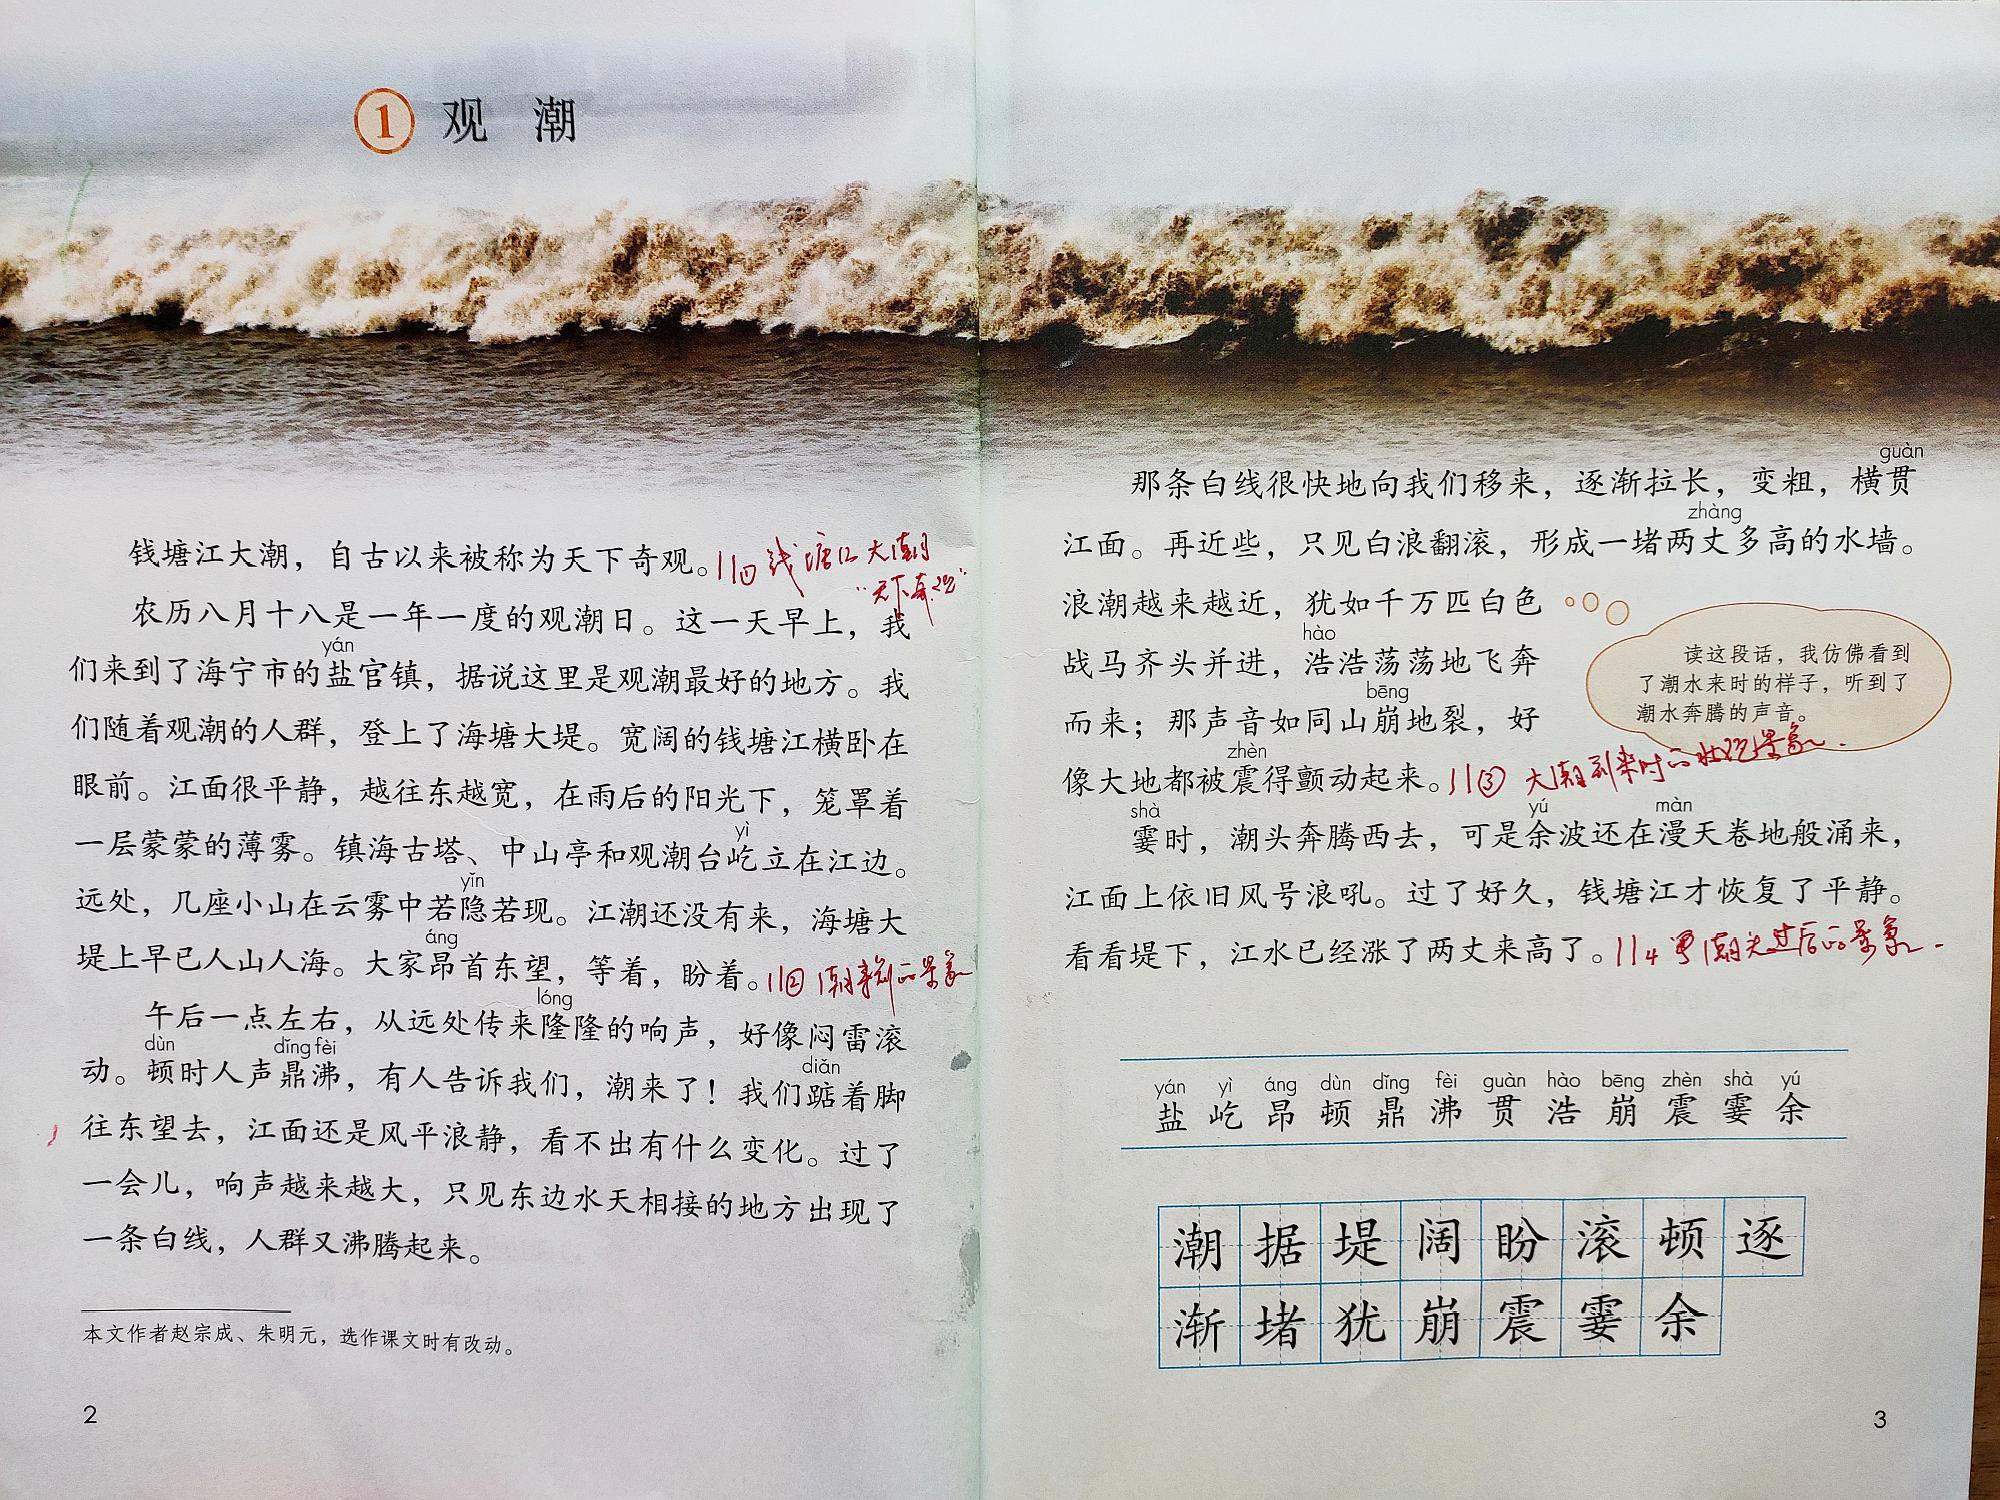 1 观潮
钱塘江大潮，自古以来被称为天下奇观。11① 钱塘江大潮
"天下奇观"
农历八月十八是一年一度的观潮日。这一天早上，我
yán
们来到了海宁市的盐官镇，据说这里是观潮最好的地方。我
们随着观潮的人群，登上了海塘大堤。宽阔的钱塘江横卧在
眼前。江面很平静，越往东越宽，在雨后的阳光下，笼罩着
yì
一层蒙蒙的薄雾。镇海古塔、中山亭和观潮台屹立在江边。
yǐn
远处，几座小山在云雾中若隐若现。江潮还没有来，海塘大
áng
堤上早已人山人海。大家昂首东望，等着，盼着。11② 潮来前的景象
lóng
午后一点左右，从远处传来隆隆的响声，好像闷雷滚
dùn dǐng fèi diǎn
动。顿时人声鼎沸，有人告诉我们，潮来了！我们踮着脚
往东望去，江面还是风平浪静，看不出有什么变化。过了
一会儿，响声越来越大，只见东边水天相接的地方出现了
一条白线，人群又沸腾起来。
本文作者赵宗成、朱明元，选作课文时有改动。
2
guàn
那条白线很快地向我们移来，逐渐拉长，变粗，横贯
zhàng
江面。再近些，只见白浪翻滚，形成一堵两丈多高的水墙。
浪潮越来越近，犹如千万匹白色
hào
战马齐头并进，浩浩荡荡地飞奔
bēng
而来；那声音如同山崩地裂，好
zhèn
像大地都被震得颤动起来。11③ 大潮到来时的壮观景象.
读这段话，我仿佛看到
了潮水来时的样子，听到了
潮水奔腾的声音。
shà yú màn
霎时，潮头奔腾西去，可是余波还在漫天卷地般涌来，
江面上依旧风号浪吼。过了好久，钱塘江才恢复了平静。
看看堤下，江水已经涨了两丈来高了。11 4 潮头过后的景象.
yán yì áng dùn dǐng fèi guàn hào bēng zhèn shà yú
盐 屹 昂 顿 鼎 沸 贯 浩 崩 震 霎 余
潮 据 堤 阔 盼 滚 顿 逐
渐 堵 犹 崩 震 霎 余
3